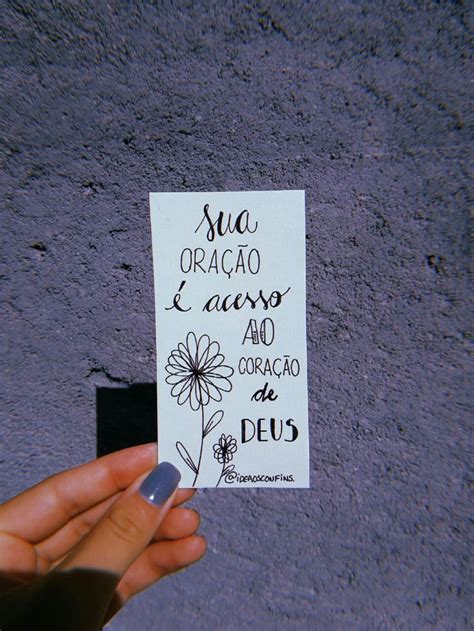 sua
ORAÇÃO
é acesso
AO
CORAÇÃO
de
DEUS
@IDEAOSCONFINS.